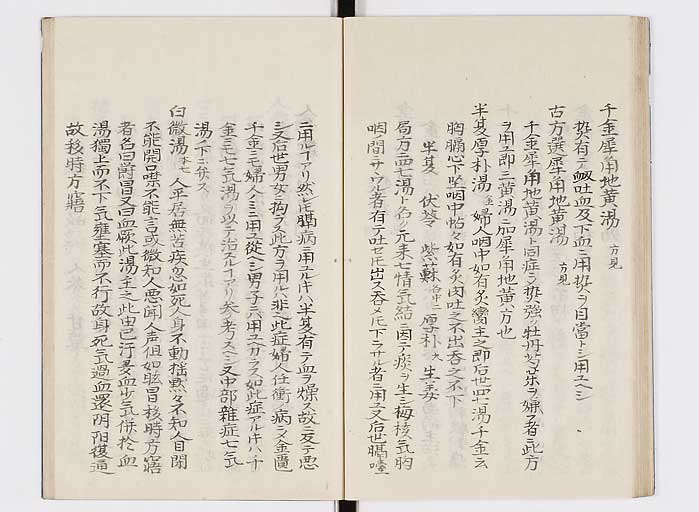 千金犀角地黄湯 方見
熱有テ衂吐血及下血ニ用熱ヲ目當トシ用ユヘシ
古方選犀角地黄湯 方見
千金犀角地黄湯ト同症ニ熱強ク牡丹芍薬ヲ嫌フ者ニ此方
ヲ用即三黄湯ニ加犀角地黄方也
半夏厚朴湯 婦人咽中如有炙臠主之即后世四七湯千金云
胸滿心下坚咽中怗々如有炙肉吐之不出吞之不下
半夏 伏苓 紫蘇 厚朴 生姜
局方ニ四七湯ト名ク元来七情ノ気結ニ因テ痰ヲ生シ梅核気胸
咽ノ間ニサワル者有テ吐セトモ出ス吞メトモ下ラサル者ニ用ユ又后世膈噎
ニ用ルヿアリ然レトモ膈病ニ用ユルキハ半夏有テ血ヲ燥ス故ニ反テ悪
シ又后世男女ニ拘ラス此方ヲ用ルハ非也此症婦人任衝ノ病ニメ金匱
千金ニモ婦人ニミ用ユ從ヘシ男子ニハ用ユヘカラス如此症アルキハ千
金ニ七気湯ヲ以テ治スルヿアリ参考スヘシ又中部雜症七気
湯ノ下ニ弁ス
白薇湯 本七 人平居無苦疾忽如死人身不動揺黙々不知人目閉
不能開口噤不能言或微知人悪聞人声但如眩冒移時方寤
者名曰欝冒又曰血厥此湯主之此由已汗夛血少気併於血
湯獨上而不下気壅塞而不行故身死気過血還阴阳復通
故移時方寤